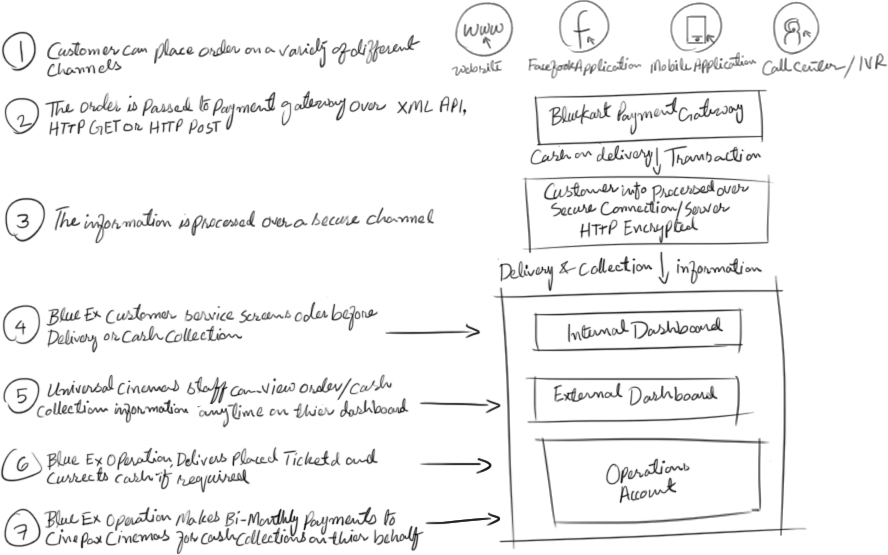 1 Customer can place order on a variety of different
channels
www
f
website
Facebook Application
Mobile Application
Call Center/IVR
2 The order is Passed to Payment gateway over XML API,
HTTP GET or HTTP POST
Bluekart Payment Gateway
Cash on delivery Transaction
3 The information is processed over a secure channel
Customer info Processed over
Secure Connection/Server
HTTP Encrypted
Delivery & Collection information
4 Blue Ex Customer service screens oder before
Delivery or Cash Collection
Internal Dashboard
5 Universal Cinemas staff can view order/cash
Collection information anytime on thier dashboard
External Dashboard
6 Blue Ex Operation, Delivers Placed Ticketd and
Currects cash if required
Operations
Account
7 Blue Ex Operation Makes Bi-Monthly Payments to
Cinepax Cinemas for cash Collections on thier behalf